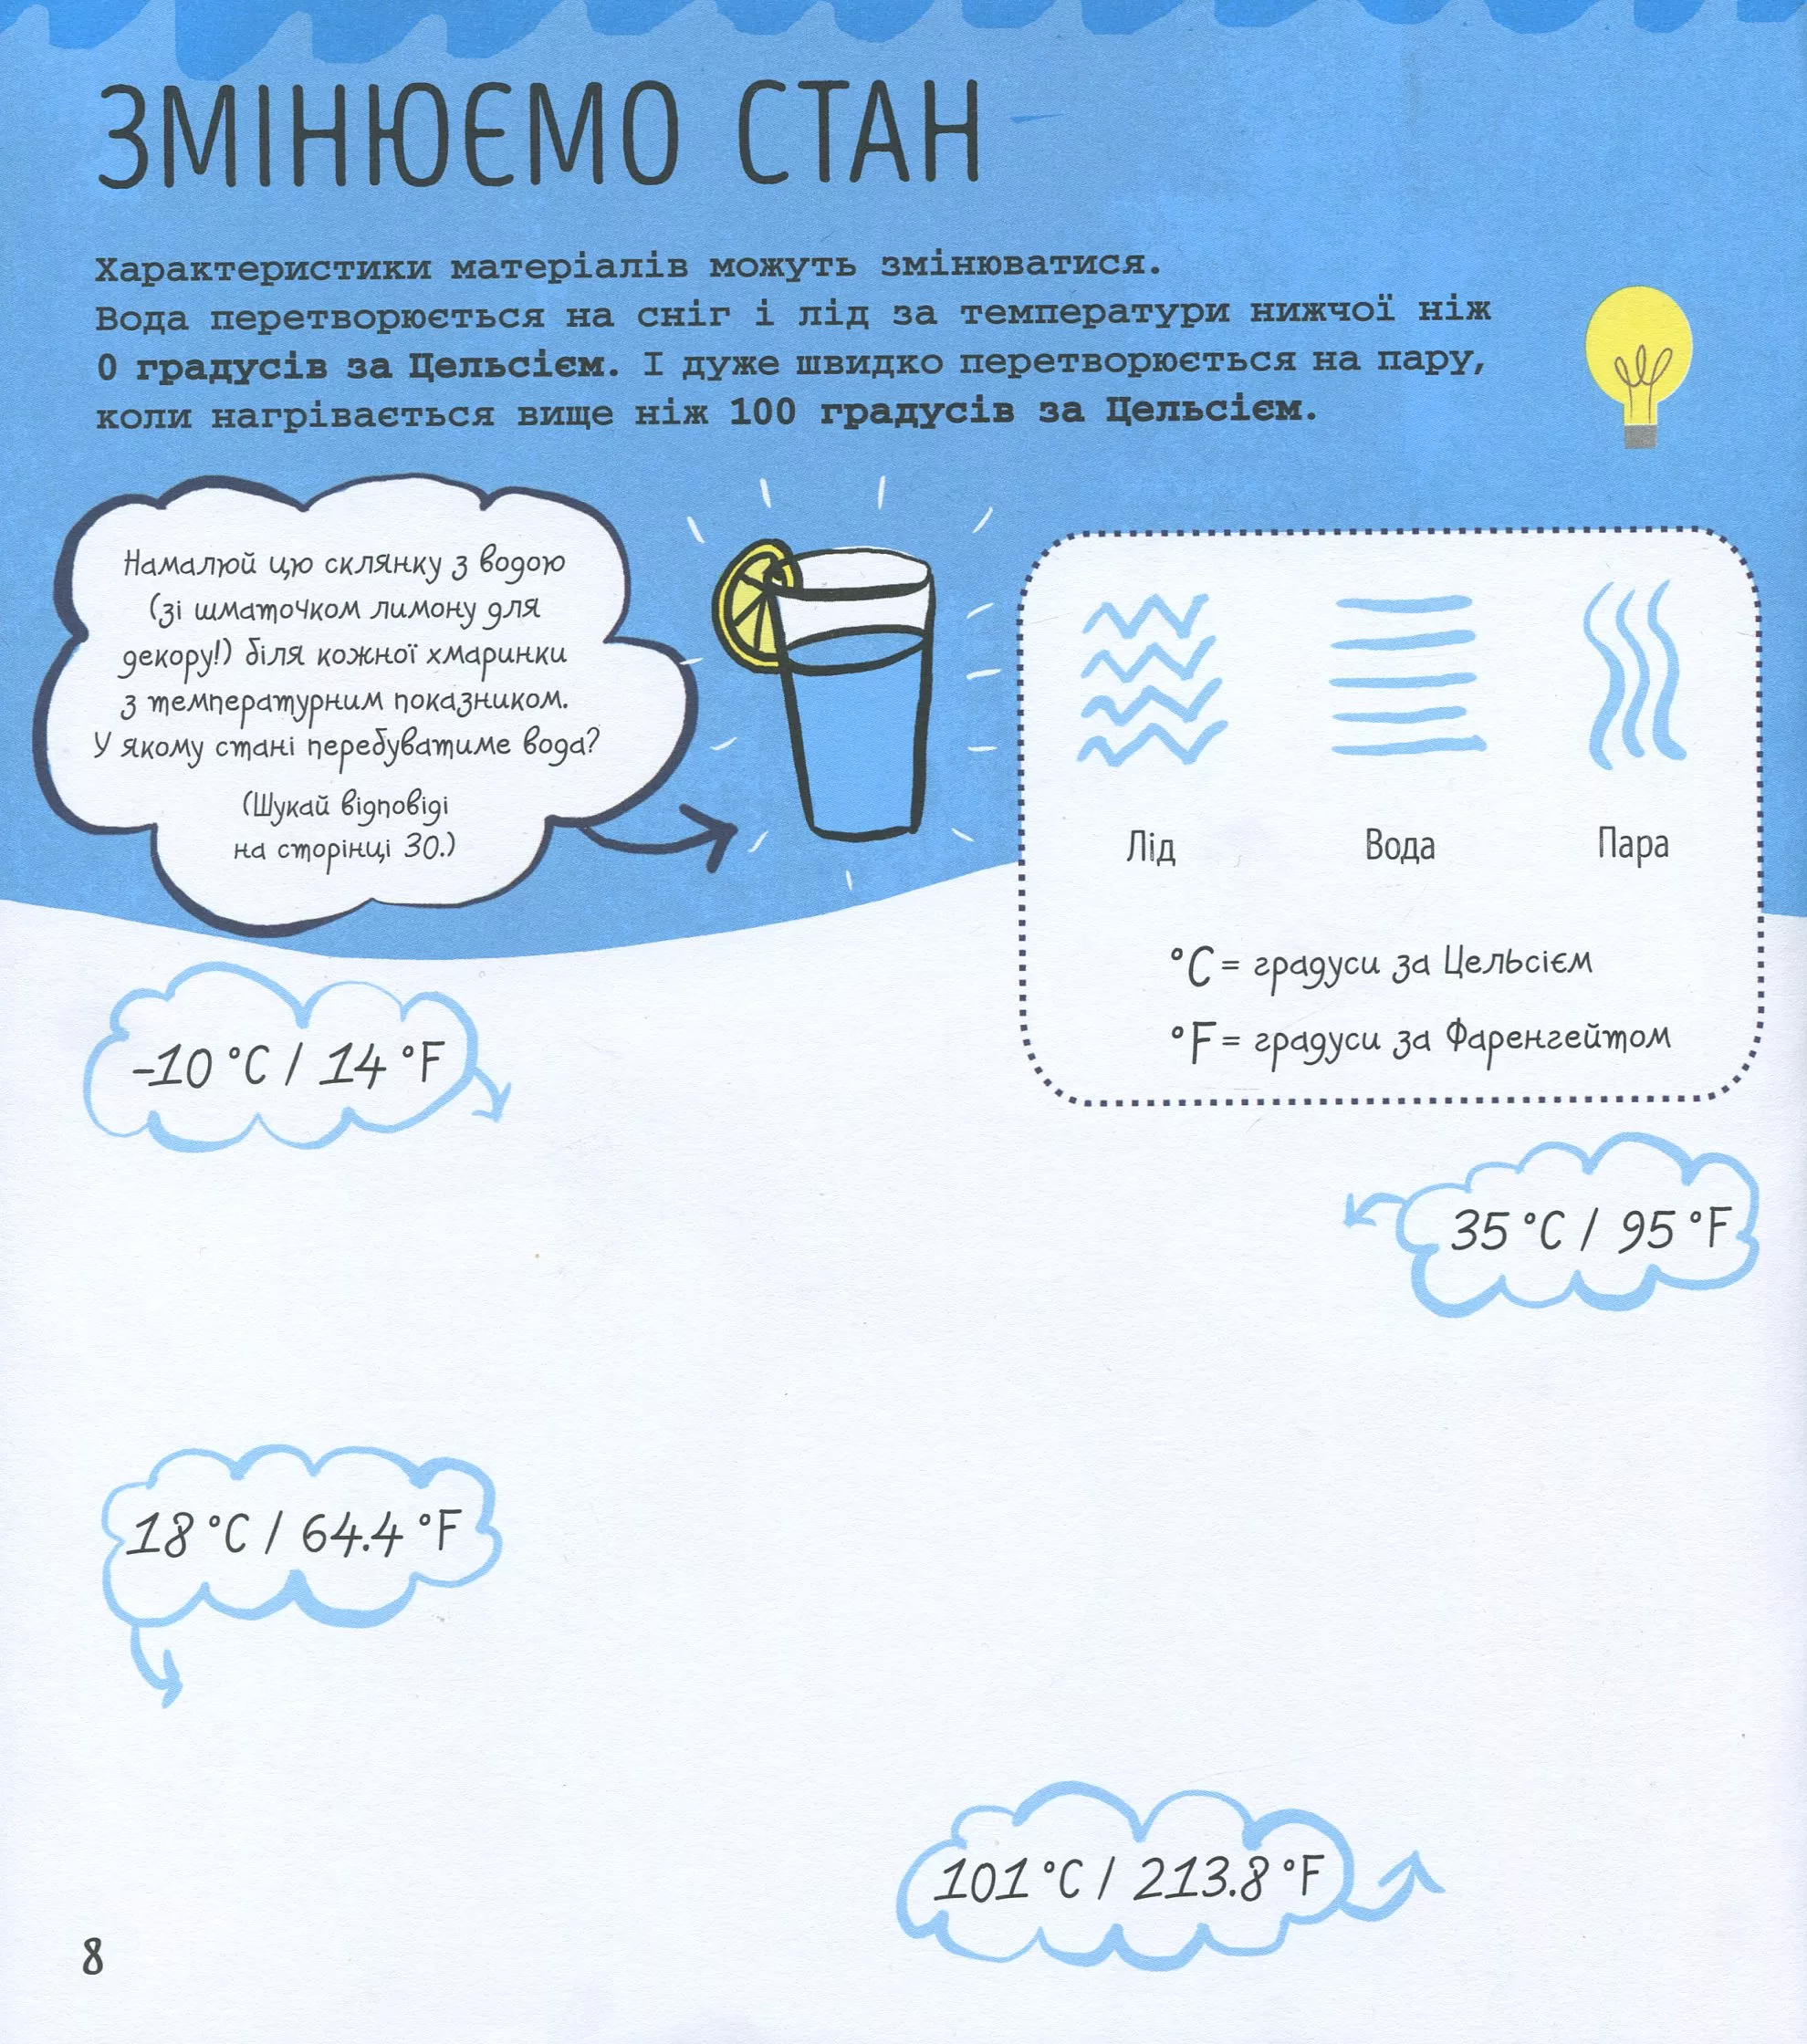 ЗМІНЮЄМО СТАН
Характеристики матеріалів можуть змінюватися.
Вода перетворюється на сніг і лід за температури нижчої ніж
0 градусів за Цельсієм. І дуже швидко перетворюється на пару,
коли нагрівається вище ніж 100 градусів за Цельсієм.
Намалюй цю склянку з водою
(зі шматочком лимону для
декору!) біля кожної хмаринки
з температурним показником.
У якому стані перебуватиме вода?
(Шукай відповіді
на сторінці 30.)
Лід
Вода
Пара
°C = градуси за Цельсієм
°F = градуси за Фаренгейтом
-10 °C / 14 °F
35 °C / 95 °F
18 °C / 64.4 °F
101 °C / 213.8 °F
8